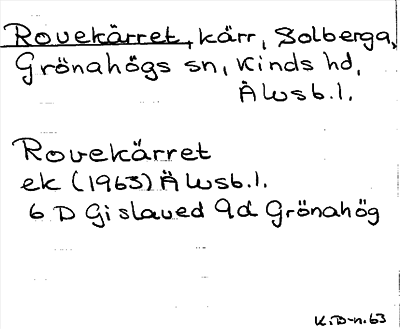 Rovekärret, kärr, Solberga,
Grönahögs sn, Kinds hd,
Älvsb.l.
Rovekärret
ek (1963) Älvsb.l.
6 D Gislaved 9d Grönahög
K.D-n.63